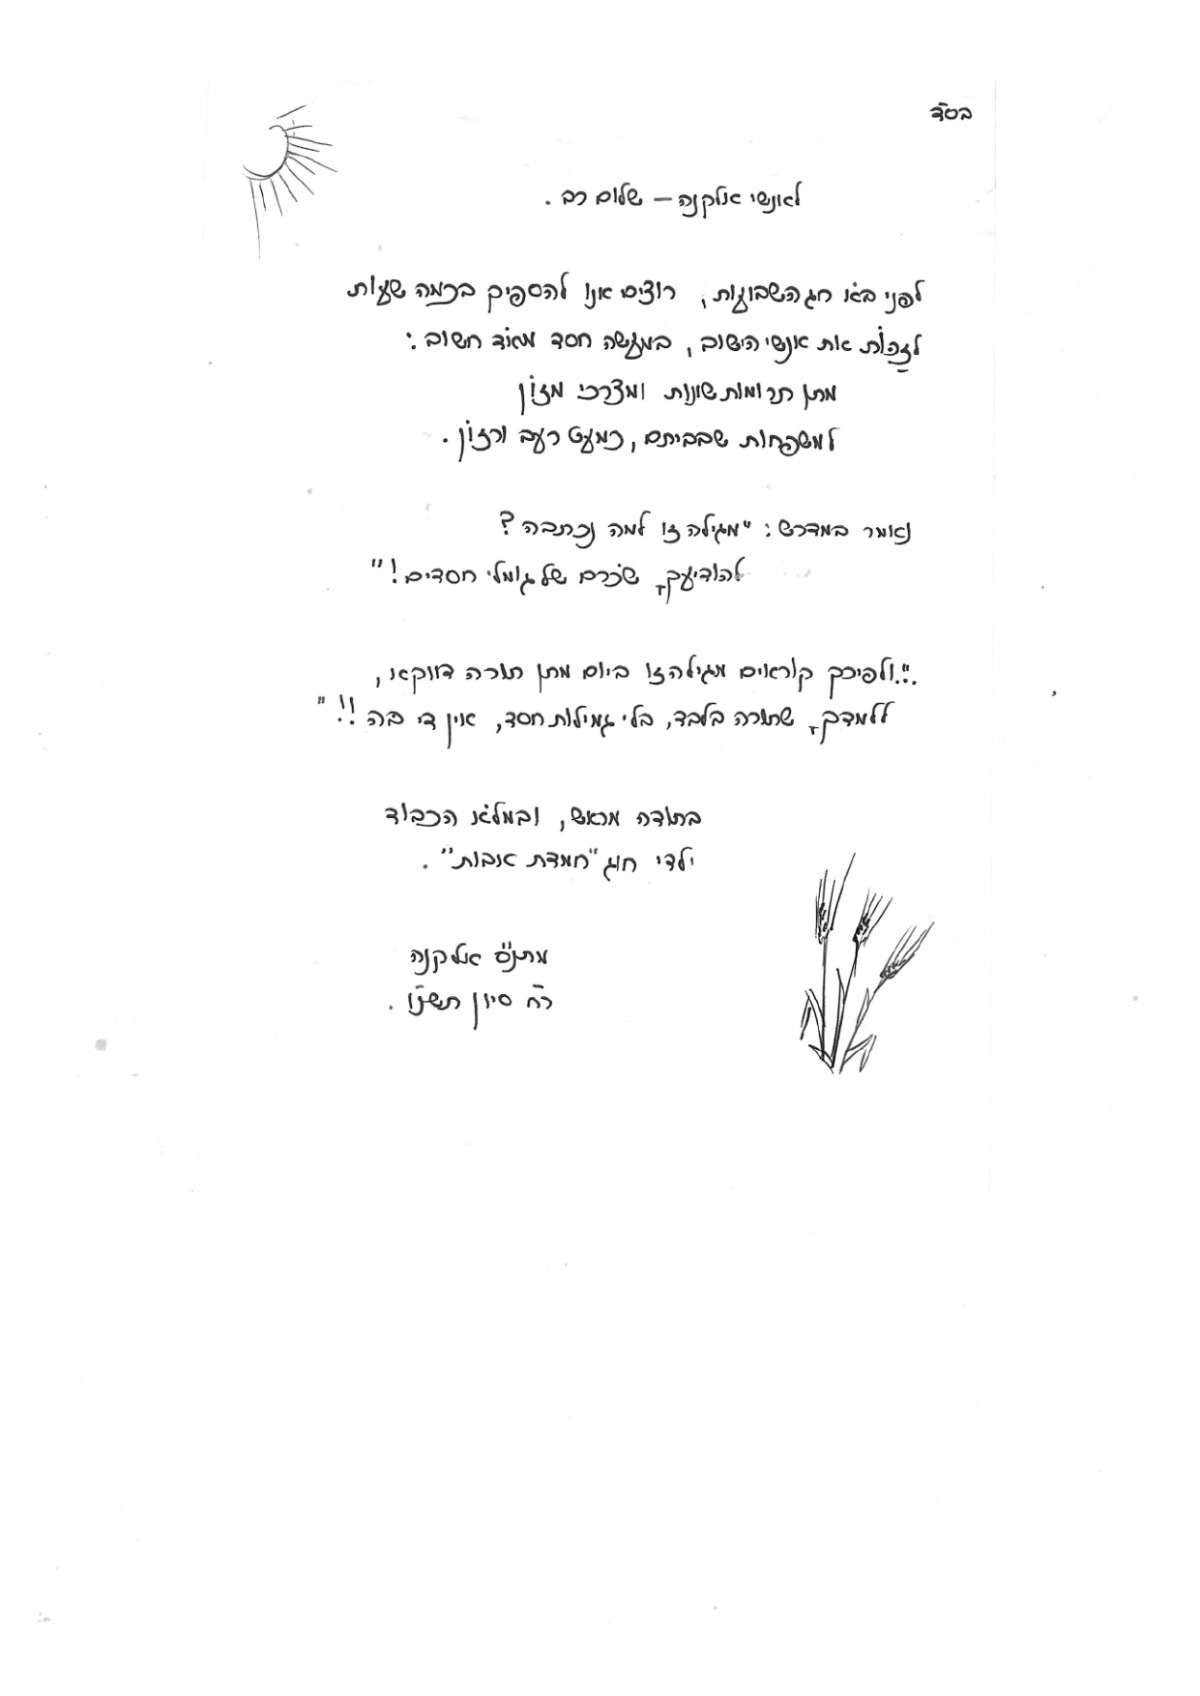 בס"ד
לאנשי אלקנה – שלום רב.
לפני בֹּא חג השבועות, רוצים אנו להספיק בכמה שעות
לְזַכּוֹת את אנשי הישוב, במעשה חסד מאוֹד חשוב:
מתן תרומות שונות ומצרכי מזוֹן
למשפחות שבביתם, כמעט רעב ורזוֹן.
נאמר במדרש: "מגילה זו למה נכתבה?
להודיעךָ, שׂכרם של גומלי חסדים!"
"...ולפיכך קוראים מגילה זו ביום מתן תורה דווקא,
ללמדךָ, שתורה בלבד, בלי גמילות חסד, אין די בה!!"
בתודה מראש, ובמלֹא הכבוד
ילדי חוג "חמדת אבות".
מתנ"ס אלקנה
ר"ח סיון תשנ"ו.